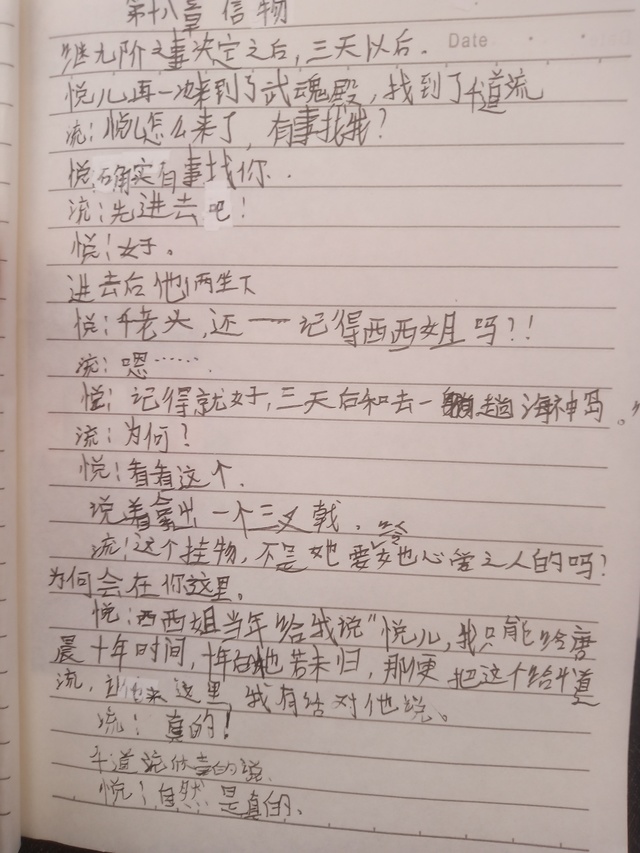 第十八章 信物
Date
继九阶之事决定之后,三天以后.
悦儿再一次来到了武魂殿,找到了千道流
流:悦儿怎么来了,有事找我?
悦:确实有事找你..
流:先进去吧!
悦:好。
进去后他俩坐下
悦:千老头,还一一记得西西姐吗?!!
流:嗯……
悦:记得就好,三天后和去一趟海神岛。"
流:为何?
悦:看看这个.
说着拿出一个三叉戟.
流:这个挂物,不是她要给她心爱之人的吗?
为何会在你这里。
悦:西西姐当年给我说"悦儿,我只能给唐
晨十年时间,十年后他若未归,那便把这个给千道
流,让他来这里,我有话对他说。
流:真的!
千道流的说.
悦:自然是真的.